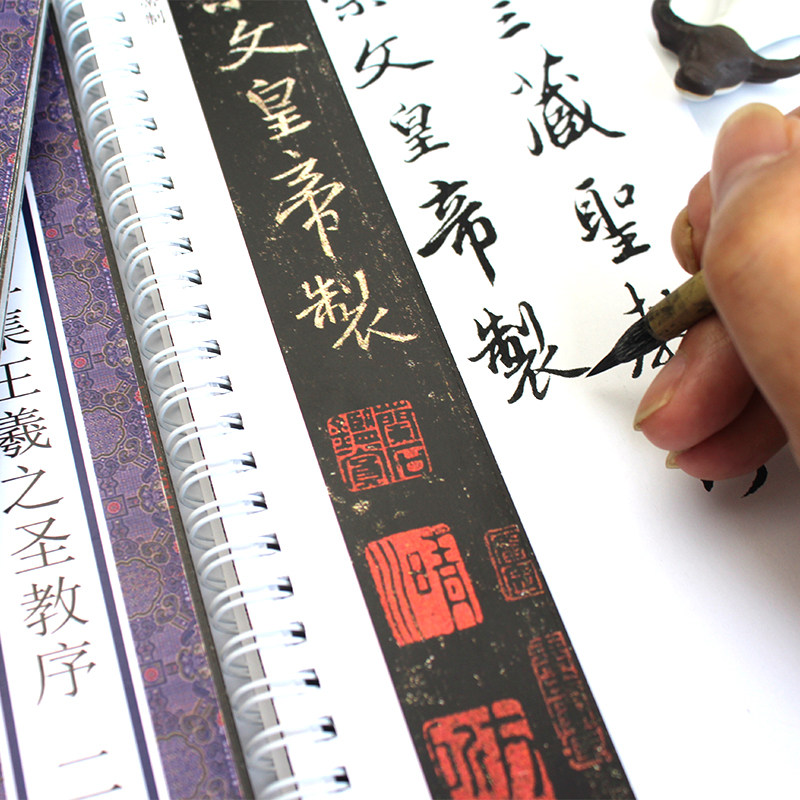 三藏聖教
宗文皇帝製
文皇帝製
帝制
集王羲之圣教序 二